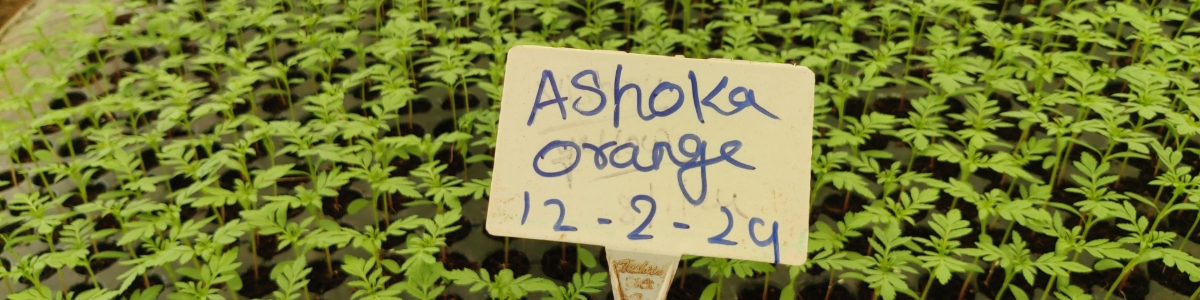 Ashoka
orange
12-2-24